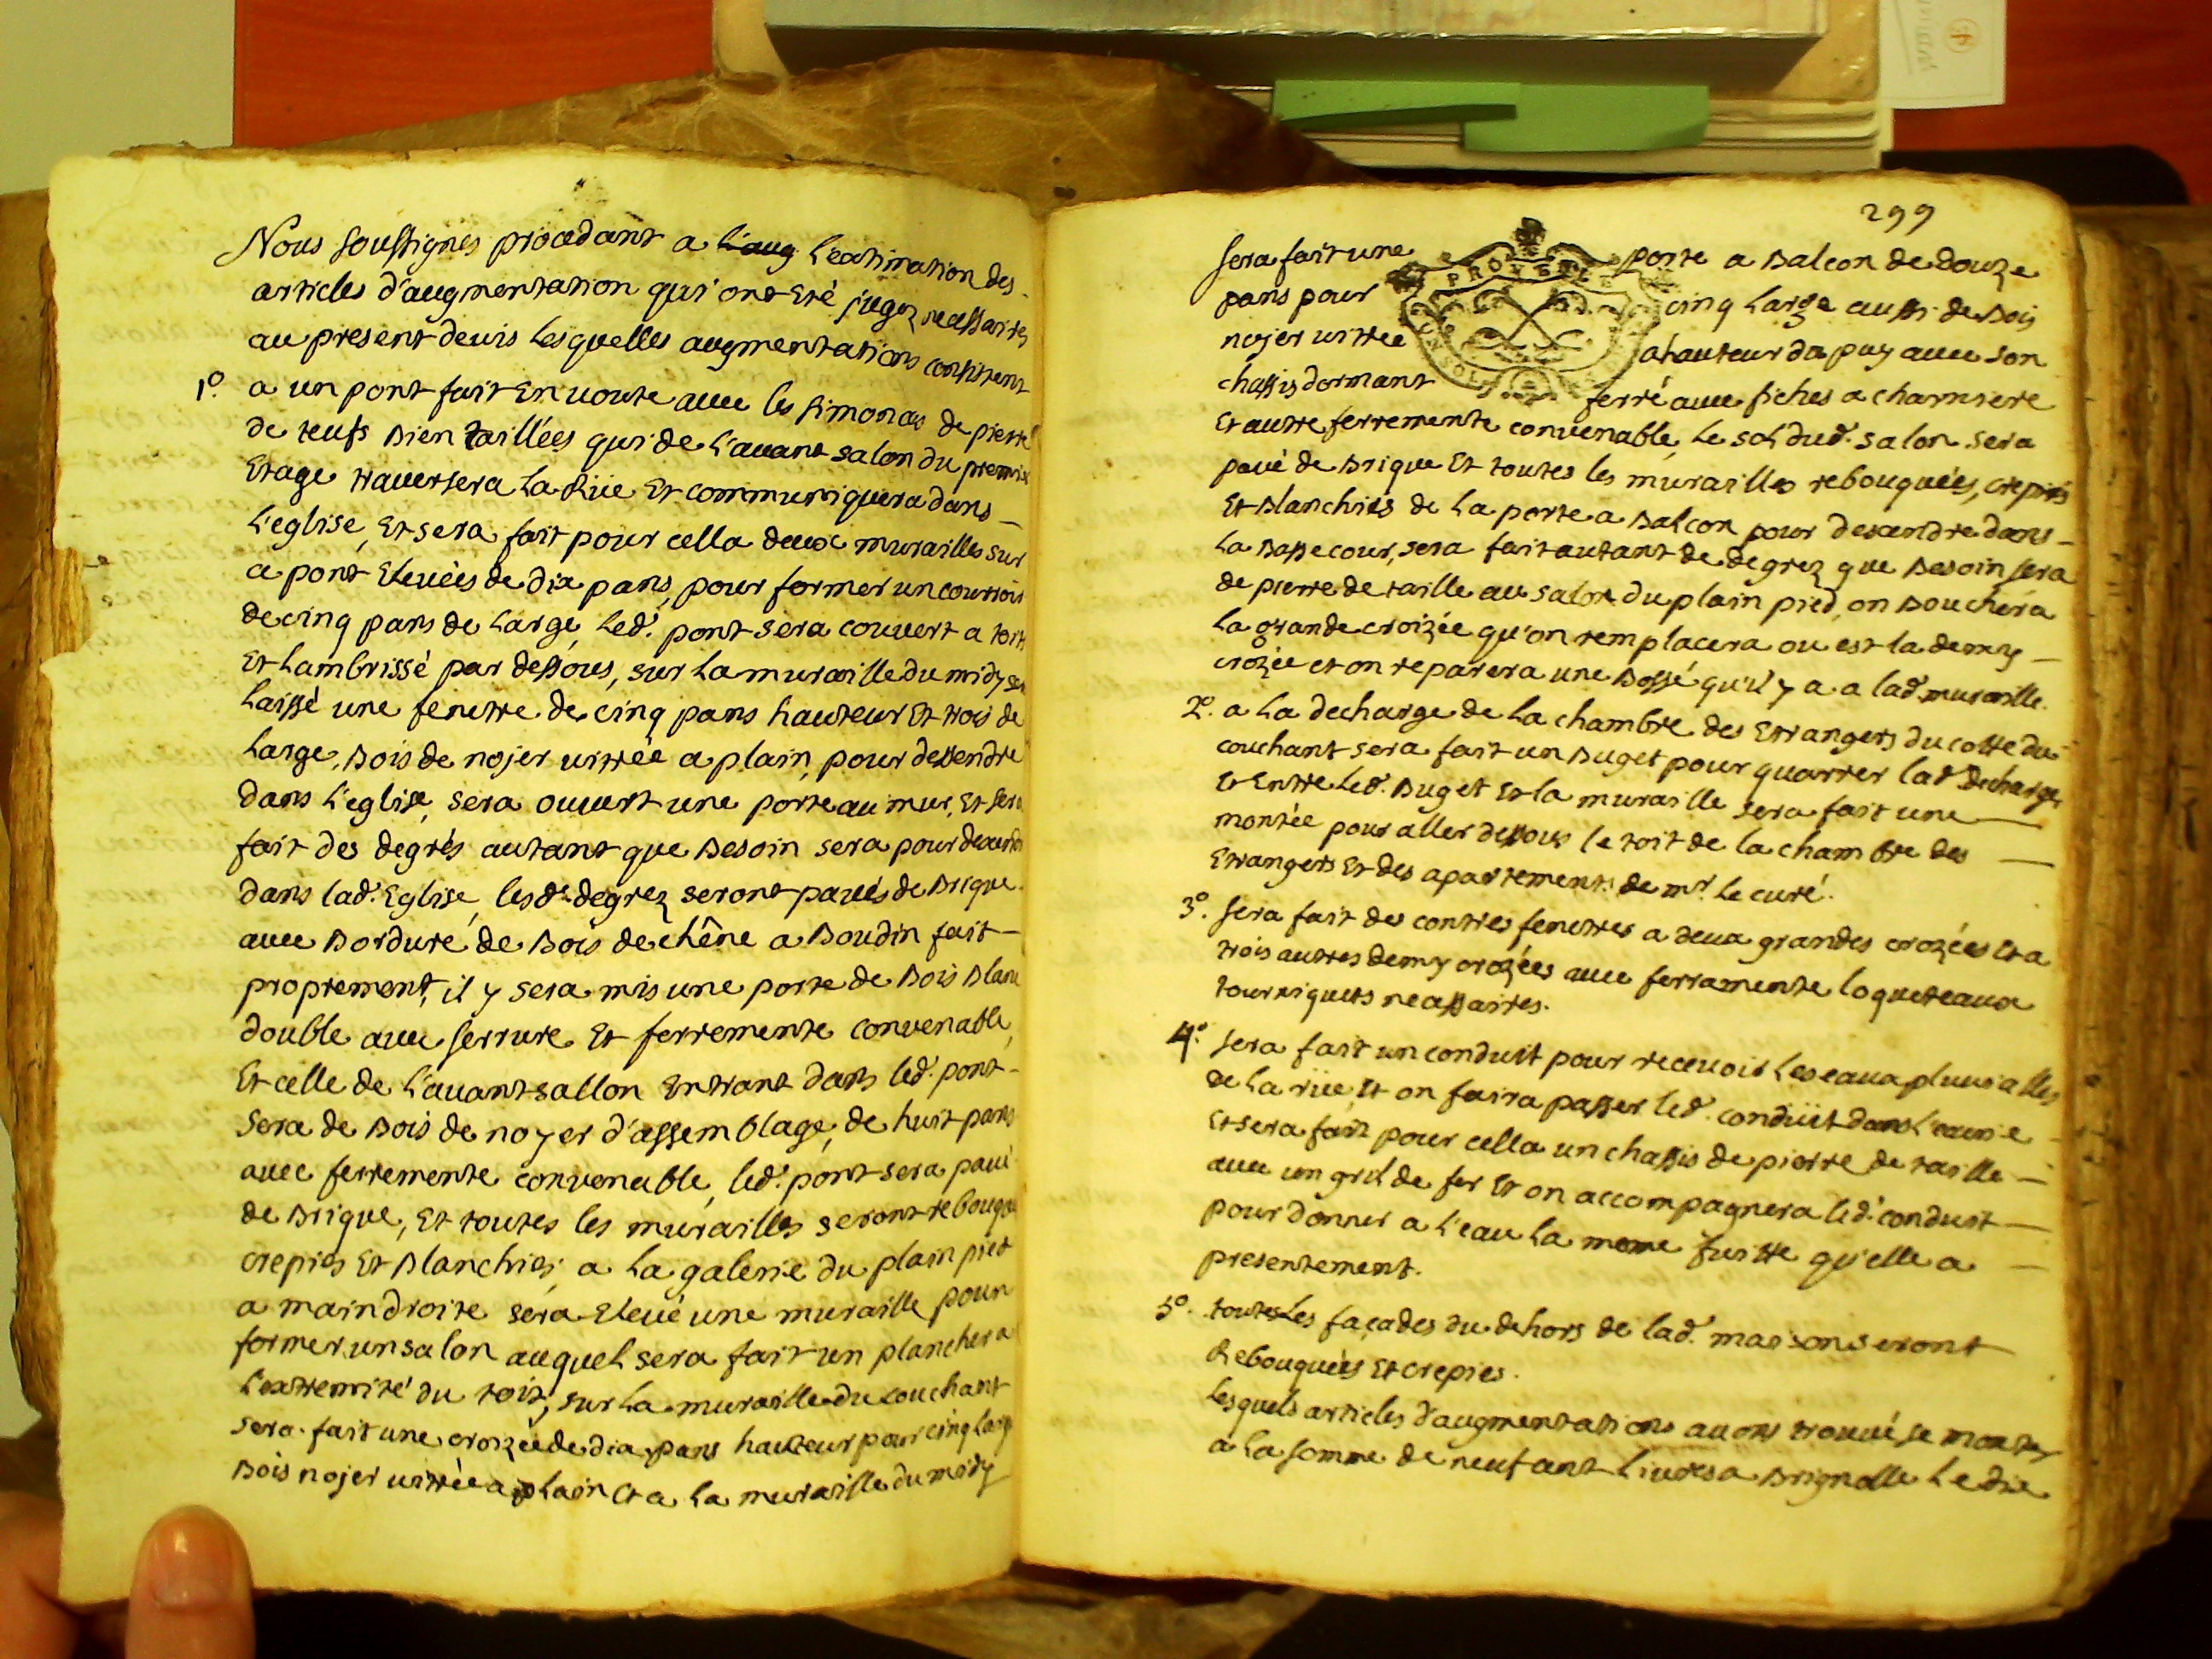 Nous soussignés procedant a l'aug l'estimation des
articles d'augmentation qui ont eté jugez necessaires
au present devis lesquelles augmentations consistent
1º. a un pont fait en voute avec les simonces de pierre
de teufs bien taillées qui de l'avant salon du premier
etage traversera la Rüe et communiquera dans
l'eglise, et sera fait pour cella deux murailles sur
ce pont elevées de dix pans, pour former un courroir
de cinq pans de large, led. pont sera couvert a toit
et lambrissé par dessous, sur la muraille du midy sera
laissé une fenetre de cinq pans hauteur et trois de
large, bois de nojer vitrée a plain, pour dessendre
dans l'eglise, sera ouvert une porte au mur, et sera
fait des degrés autant que besoin sera pour desandre
dans lad. Eglise, lesd. degrez seront pavés de brique
avec bordure de bois de chêne a boudin fait
proprement, il y sera mis une porte de bois blanc
double avec serrure et ferremente convenable,
et celle de l'avant sallon entrant dans led. pont
sera de bois de noyer d'assemblage, de huit pans
avec ferremente convenable, led. pont sera pavé
de brique, et toutes les murailles seront rebouquées
crepies et blanchies, a la galerie du plain pied
a main droite sera elevé une muraille pour
former un salon auquel sera fait un plancher a
l'extremité du toit, sur la muraille du couchant
sera fait une croizée de dix pans hauteur pour cinq large
bois nojer vitrée a plain et a la muraille du midy
299
PROVENCE
sera fait une porte a balcon de douze
pans pour cinq large aussi de bois
nojer vitree a hauteur dapuy avec son
chassis dormant ferré avec fiches a charniere
et autre ferremente convenable, le sol dud. salon sera
pavé de brique et toutes les murailles rebouquées, crepies
et blanchies de la porte a balcon pour desandre dans
la basse cour, sera fait autant de degrez que besoin sera
de pierre de taille au salon du plain pied, on bouchera
la grande croizée qu'on remplacera ou est la demy
croizée et on reparera une bosse qu'il y a a lad. muraille.
2º. a la decharge de la chambre des etrangers du cotte du
couchant sera fait un buget pour quarrer lad. decharge,
et entre led. buget et la muraille sera fait une
montée pour aller dessous le toit de la chambre des
etrangers et des apartements de mr. le curé.
3º. sera fait des contres fenetres a deux grandes crozées et a
trois autres demy crozées avec ferramente loqueteaux
tourniquets necessaires.
4º. sera fait un conduit pour recevoir les eaux pluvialles
de la rüe, et on faira passer led. conduit dans l'ecurie
et sera fait pour cella un chassis de pierre de taille
avec un gril de fer et on accompagnera led. conduit
pour donner a l'eau la meme fuitte qu'elle a
presentement.
5º. toutes les façades du dehors de lad. maison seront
Rebouquées et crepies.
Lesquels articles d'augmentations avons trouvé se monter
a la somme de neuf cent livres a Brignolle le dix